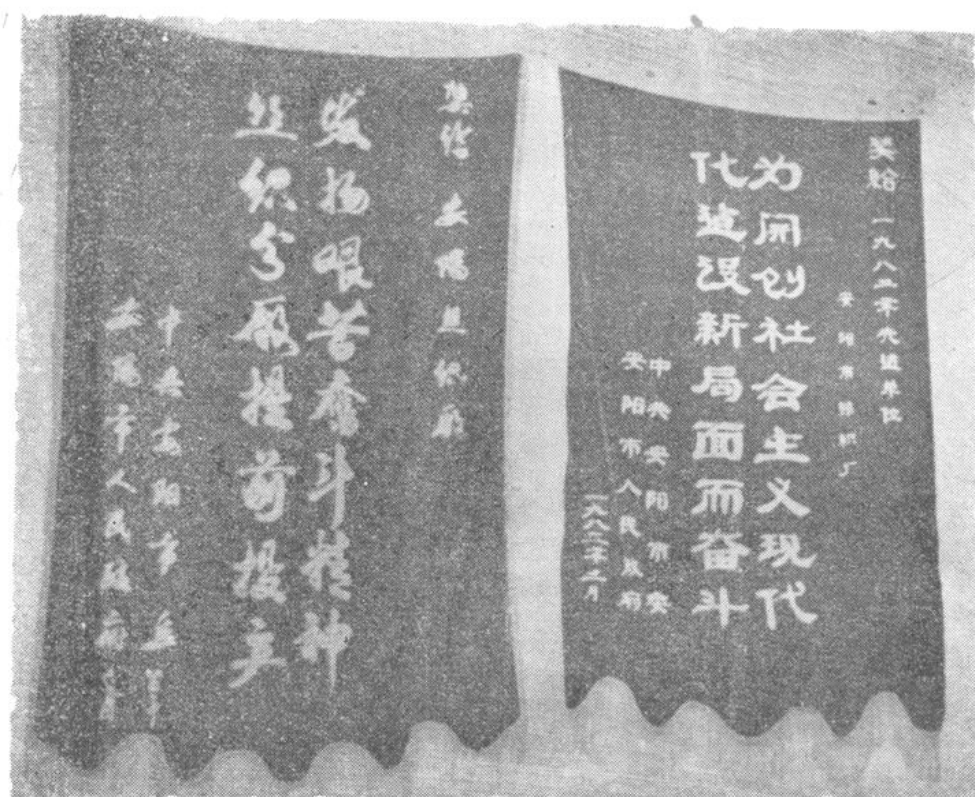 奖给 一九八二年先进单位
安阳市丝织厂
为开创社会主义现代
化建设新局面而奋斗
中共安阳市委
安阳市人民政府
一九八三年二月
奖给 安阳丝织厂
发扬艰苦奋斗精神
丝织分厂提前投产
中共安阳市委
安阳市人民政府